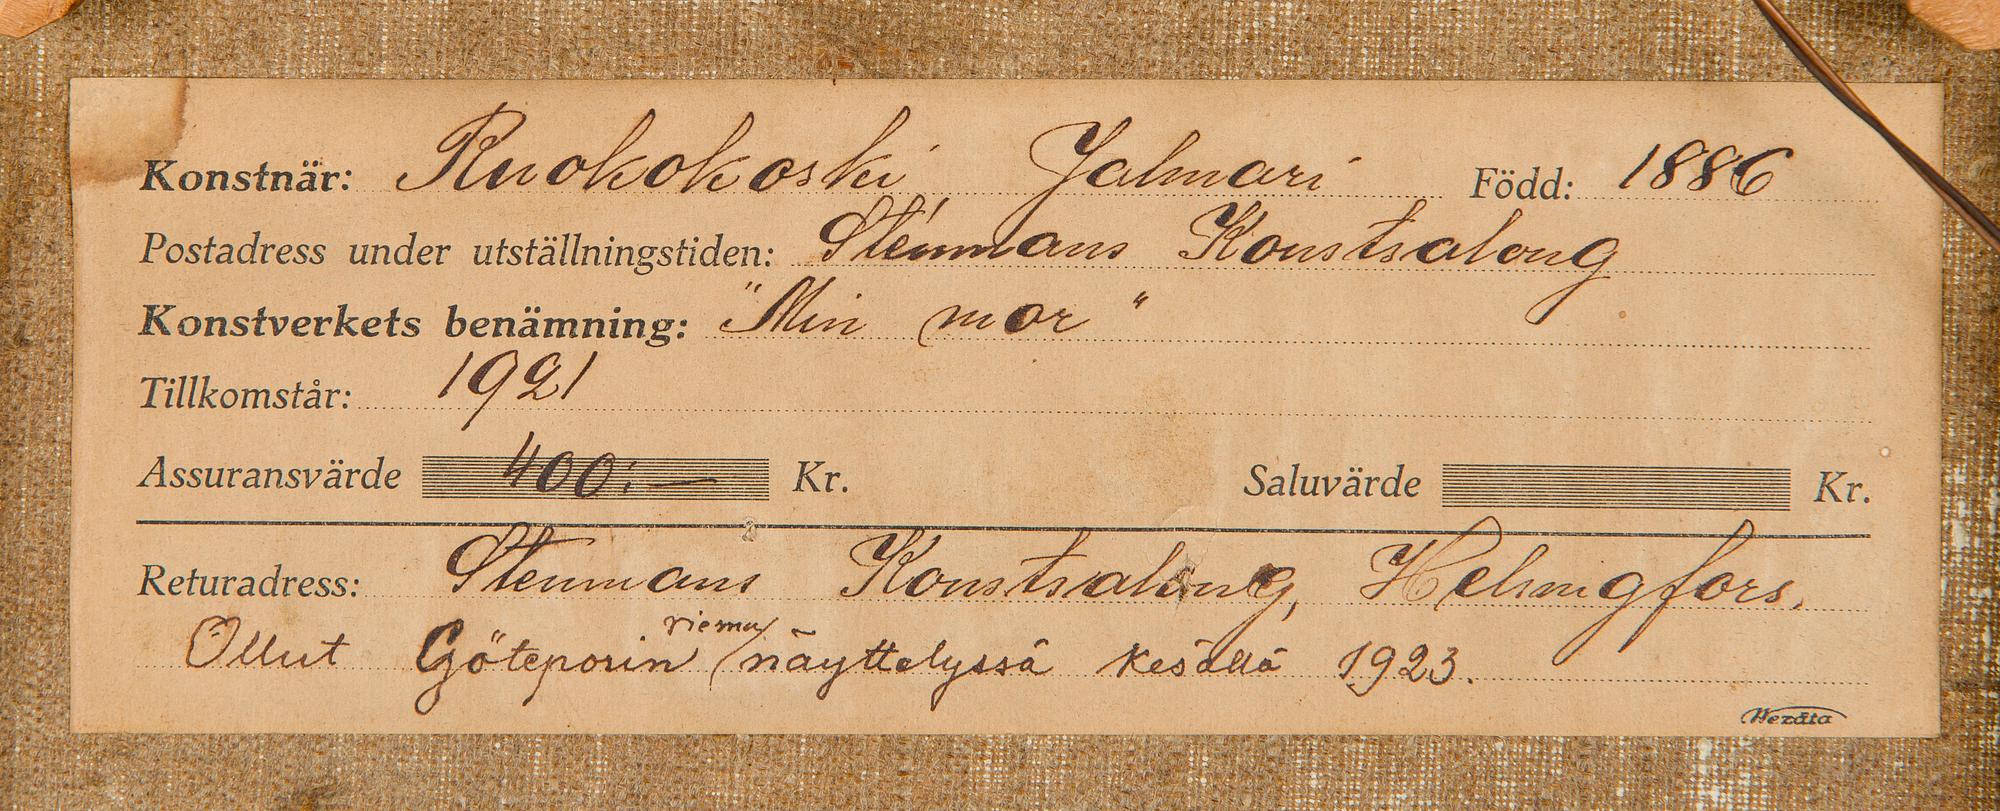 Konstnär: Ruokokoski Jalmari Född: 1886
Postadress under utställningstiden: Stenmans Konstsalong
Konstverkets benämning: "Min mor"
Tillkomstår: 1921
Assuransvärde 400:— Kr. Saluvärde Kr.
Returadress: Stenmans Konstsalong, Helsingfors.
riemu
Ollut Göteporin näyttelyssä kesällä 1923.
Wezäta